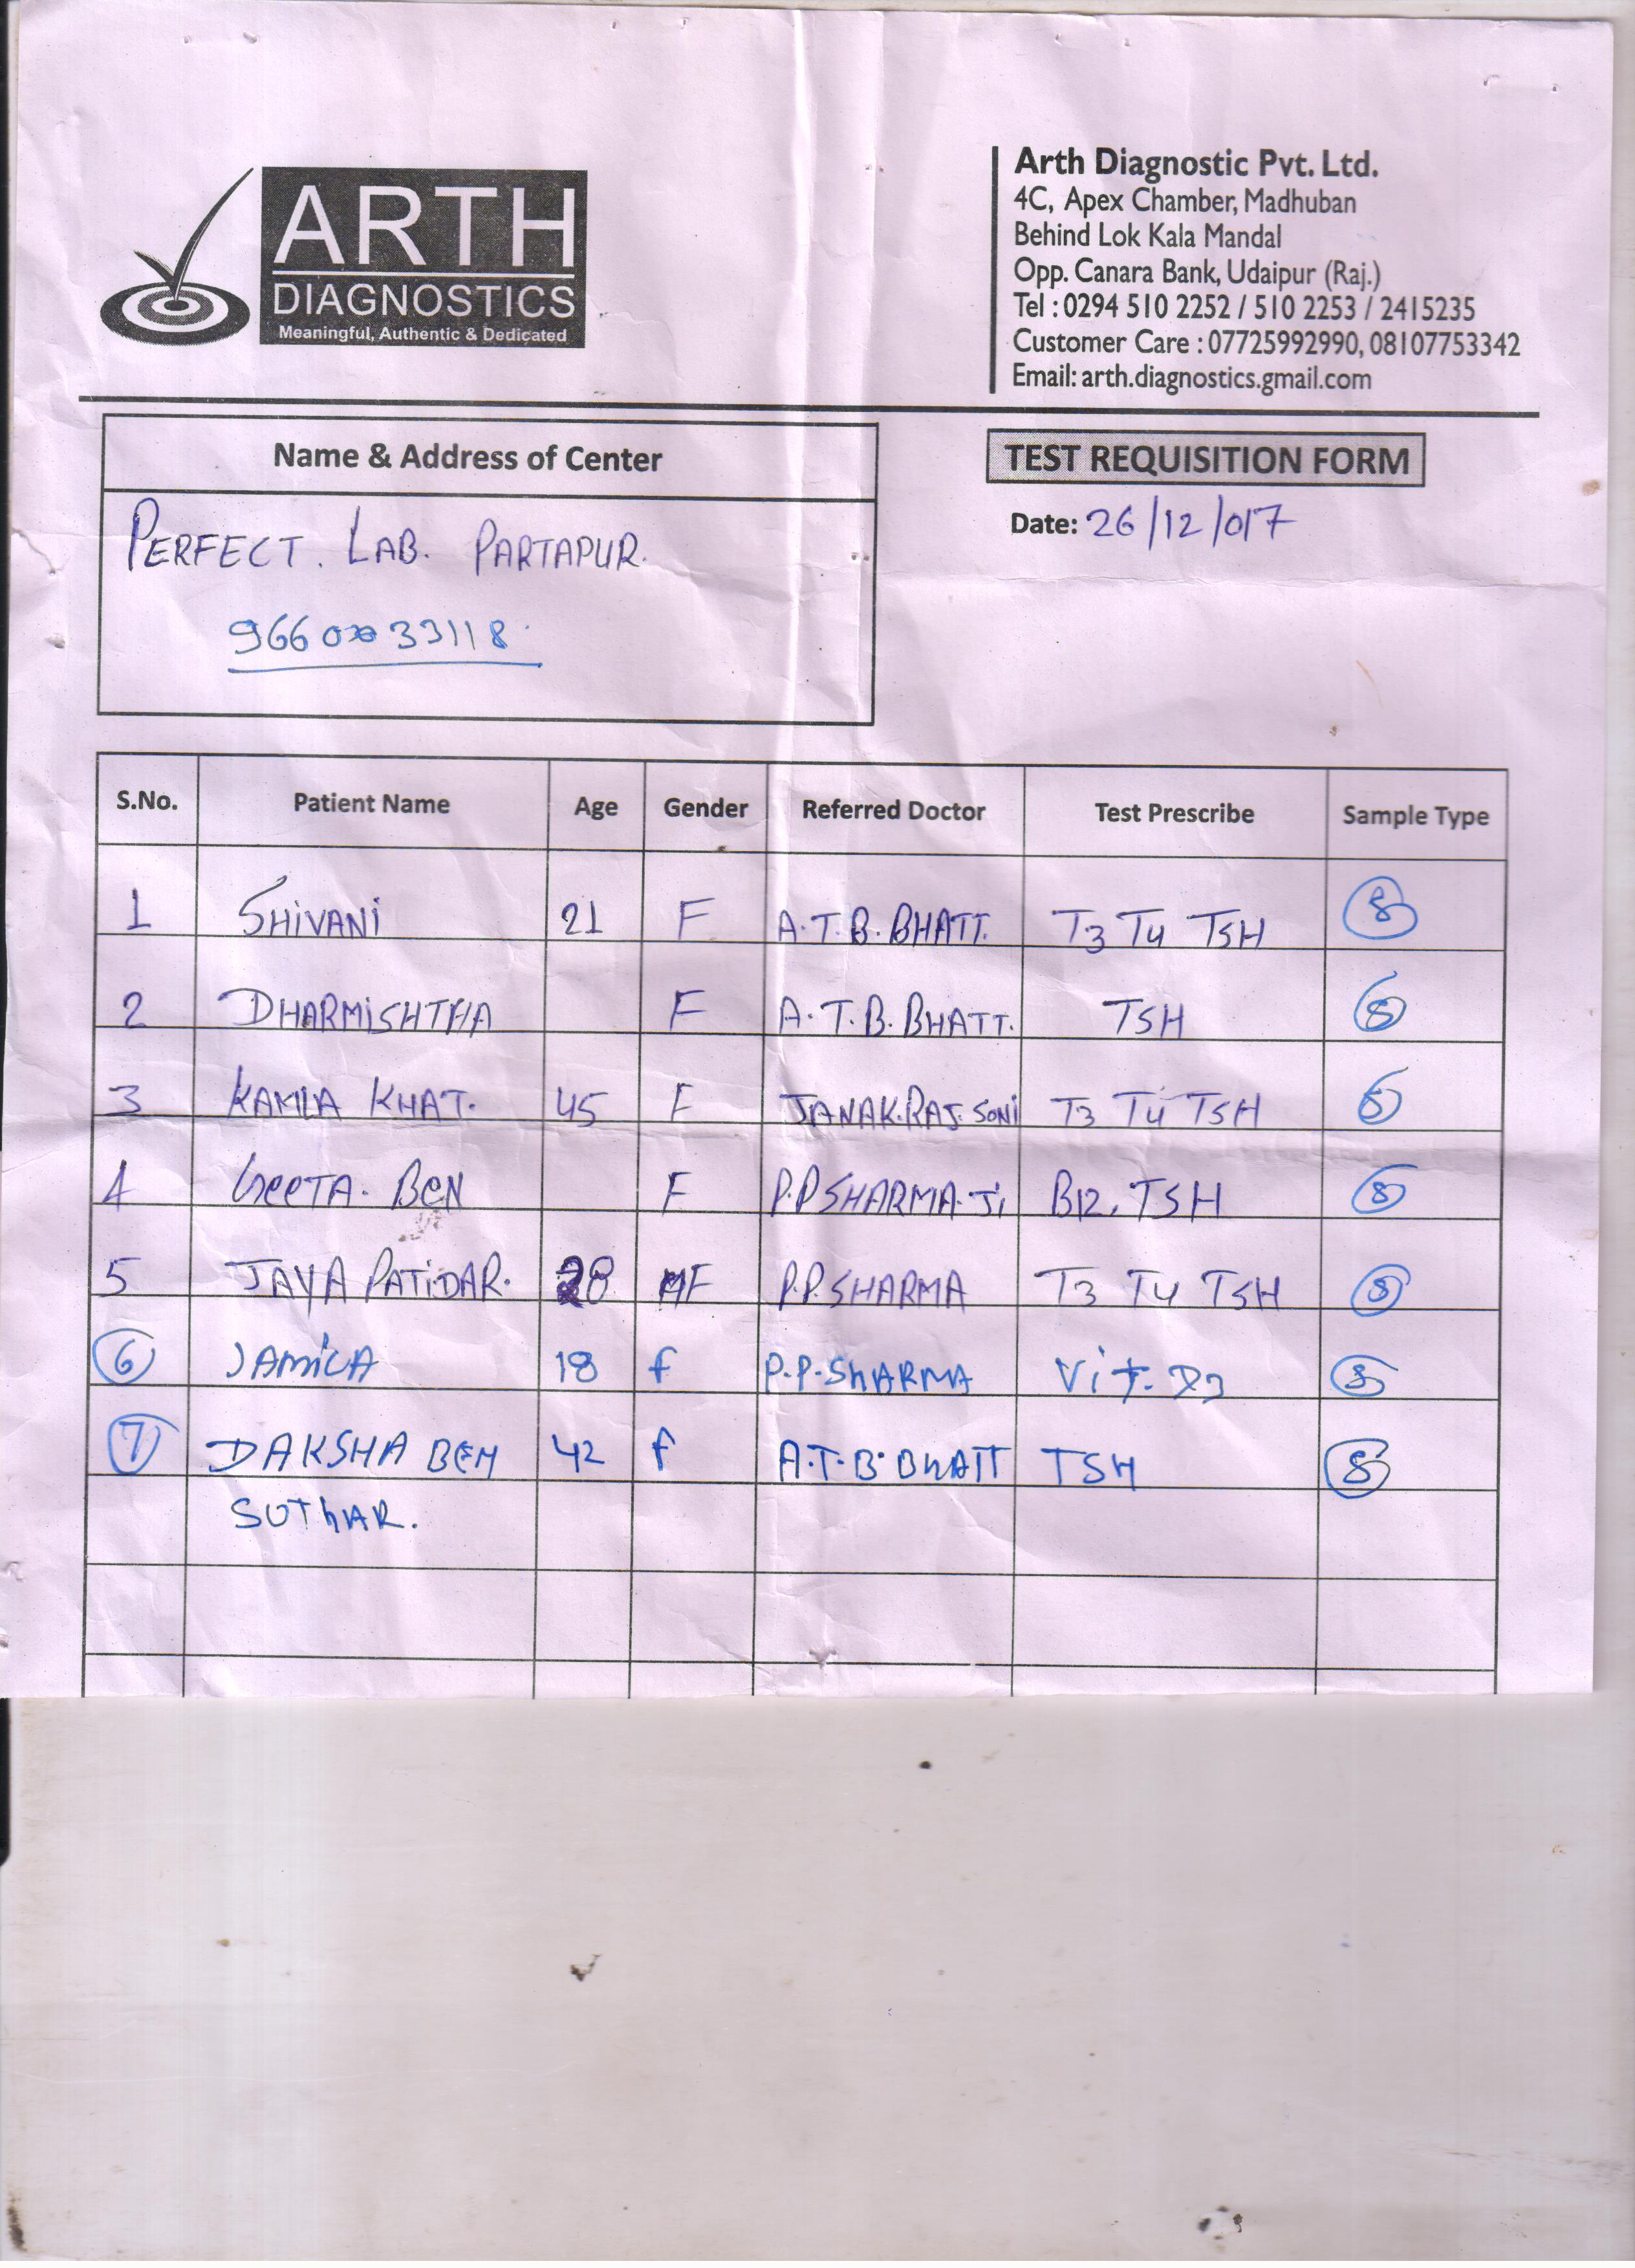 ARTH
DIAGNOSTICS
Meaningful, Authentic & Dedicated
Arth Diagnostic Pvt. Ltd.
4C, Apex Chamber, Madhuban
Behind Lok Kala Mandal
Opp. Canara Bank, Udaipur (Raj.)
Tel : 0294 510 2252 / 510 2253 / 2415235
Customer Care : 07725992990, 08107753342
Email: arth.diagnostics.gmail.com
Name & Address of Center
PERFECT. LAB. PARTAPUR.
TEST REQUISITION FORM
Date: 26/12/017
S.No. Patient Name Age Gender Referred Doctor Test Prescribe Sample Type
1 SHIVANI 21 F A.T.B.BHATT. T3 T4 TSH
2 DHARMISHTHA F A.T.B.BHATT. TSH
3 KAMLA KHAT. 45 F JANAK.RAJ.SONI T3 T4 TSH
4 GEETA. BEN F P.P SHARMA.JI B12, TSH
5 JAYA PATIDAR. 28 F P.P.SHARMA T3 T4 TSH
6 JAMILA 18 f P.P.SHARMA Vit. D3
7 DAKSHA BEN 42 f A.T.B.BHATT TSH
SUTHAR.